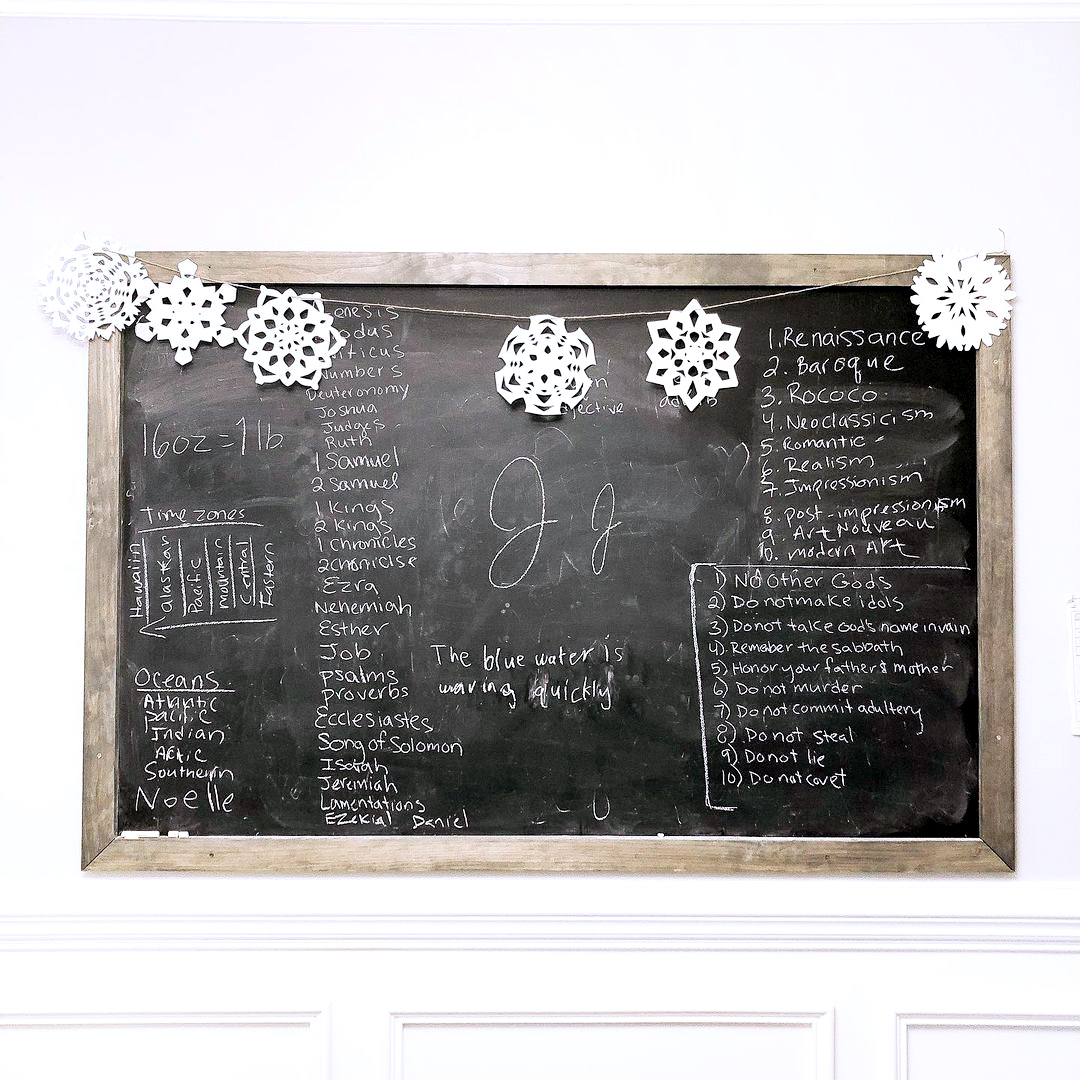 16oz = 1 lb
Time zones
Hawaiin
Alaskan
Pacific
mountain
Central
Eastern
Oceans
Atlantic
pacific
Indian
Arctic
Southern
Noelle
enesis
odus
iticus
Numbers
Deuteronomy
Joshua
Judges
Ruth
1 Samuel
2 Samuel
1 Kings
2 Kings
1 Chronicles
2 chroniclse
Ezra
Nehemiah
Esther
Job
psalms
proverbs
Ecclesiastes
Song of Solomon
Isaiah
Jeremiah
Lamentations
Ezekial Daniel
J j
The blue water is
waving quickly
1. Renaissance
2. Baroque
3. Rococo
4. Neoclassicism
5. Romantic
6. Realism
7. Impressionism
8. post-impressionism
9. Art Nouveau
10. modern Art
1) No Other Gods
2) Do not make idols
3) Do not take God's name in vain
4) Remeber the sabbath
5) Honor your father & mother
6) Do not murder
7) Do not commit adultery
8) Do not steal
9) Do not lie
10) Do not covet